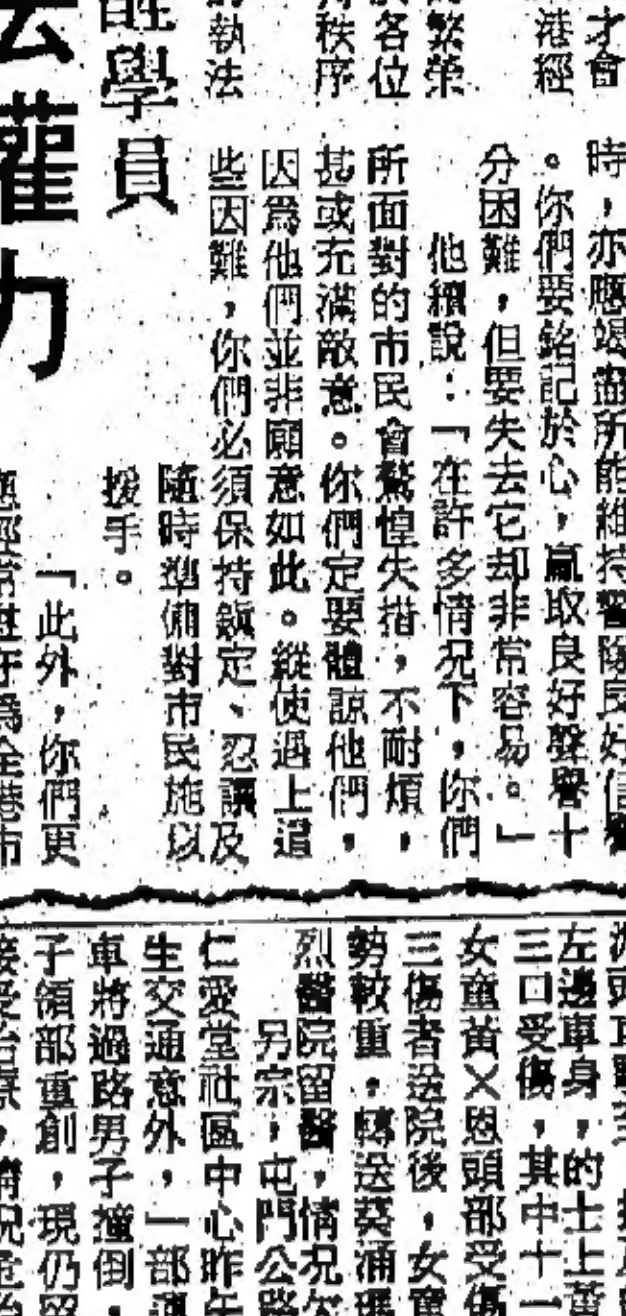 才會
港經
繁榮
各位
秩序
執法
學員
權力
時，亦應竭盡所能維持警隊良好信譽
。你們要銘記於心，贏取良好聲譽十
分困難，但要失去它却非常容易。」
他續說：「在許多情況下，你們
所面對的市民會驚惶失措，不耐煩，
甚或充滿敵意。你們定要體諒他們，
因爲他們並非願意如此。縱使遇上這
些困難，你們必須保持鎮定、忍讓及
隨時準備對市民施以
援手。
「此外，你們更
爲全港市
左邊車身，的士上
三口受傷，其中十一
女童黃×恩頭部受傷
三傷者送院後，女童
勢較重，轉送葵涌瑪
烈醫院留醫，情況欠
另宗，屯門公路
仁愛堂社區中心昨午
生交通意外，一部
車將過路男子撞倒，
子頭部重創，現仍留